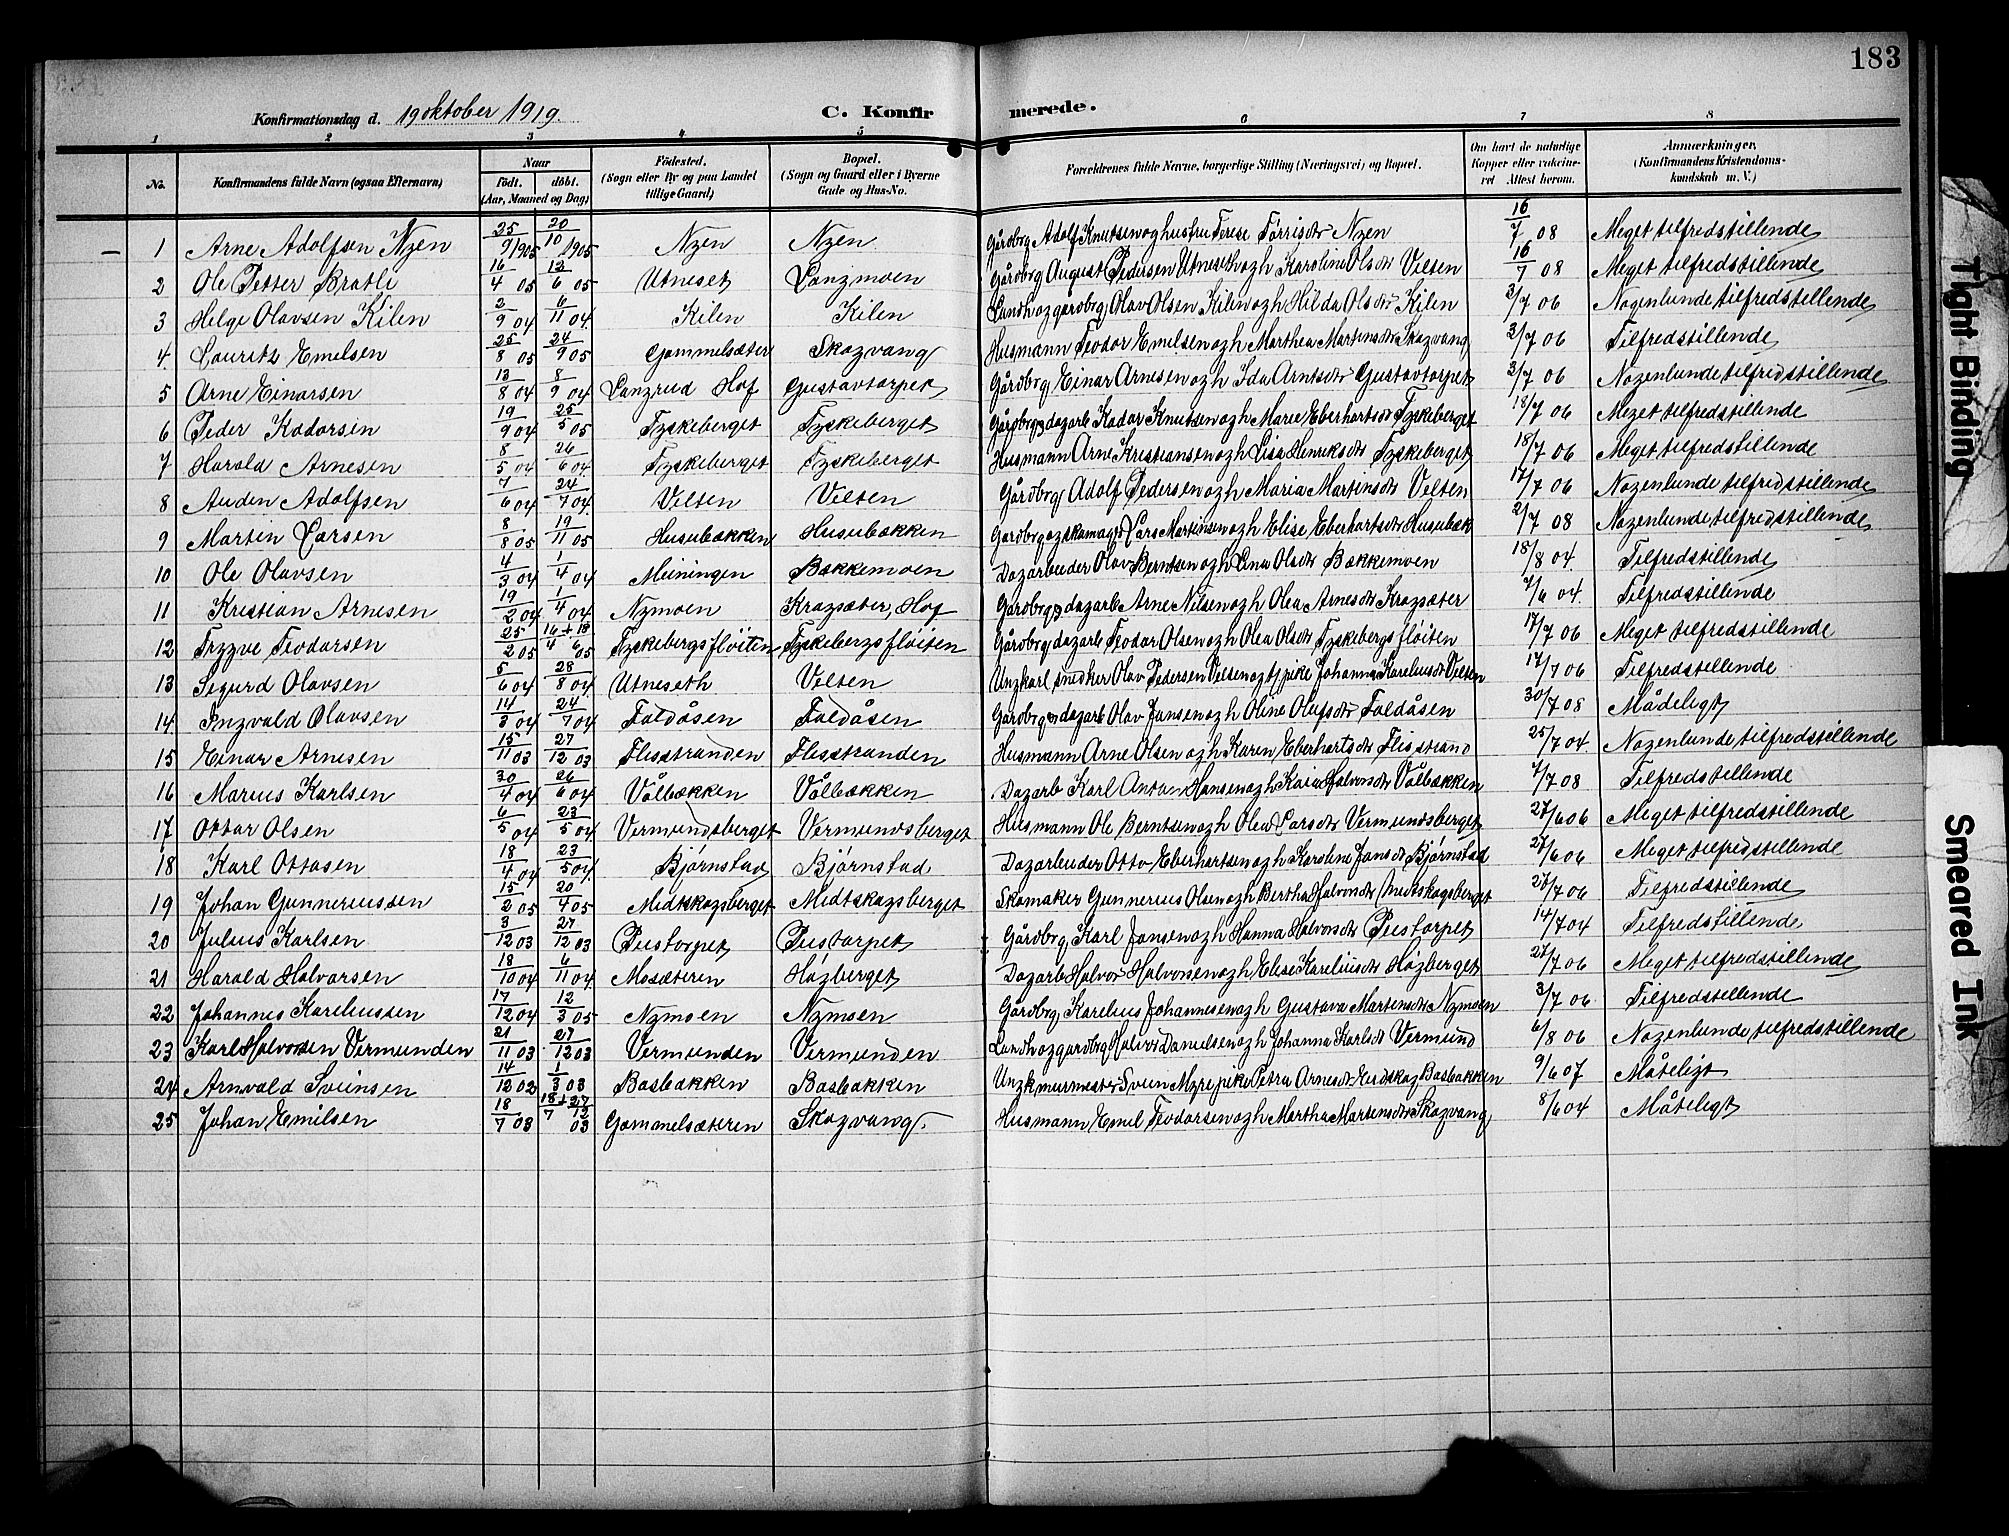 183
Konfirmationsdag d. 19 oktober 1919.
C. Konfirmerede.
1 2 3 4 5 6 7 8
No.
Konfirmandens fulde Navn (ogsaa Efternavn)
Naar
Født. døbt.
(Aar, Maaned og Dag)
Fødested.
(Sogn eller By og paa Landet tillige Gaard)
Bopæl.
(Sogn og Gaard eller i Byerne Gade og Hus-No.
Forældrenes fulde Navne, borgerlige Stilling (Næringsvei) og Bopæl.
Om havt de naturlige Kopper eller vakcineret Attest herom.
Anmærkninger, (Konfirmandens Kristendomskundskab m. V.)
1 Arne Adolfsen Nyen 25/9 1905 20/10 1905 Nyen Nyen Gårdbrg Adolf Knutsen og husfru Terese Tørrisdtr Nyen 16/7 08 Meget tilfredstillende
2 Ole Petter Bratli 16/4 05 12/6 05 Utneset Langmoen Gårdbrg August Pedersen Utneseth og h Karoline Olsdtr Velten 16/7 08 Meget tilfredstillende
3 Helge Olavsen Kilen 2/9 04 6/11 04 Kilen Kilen Landh og gardbrg Olav Olsen Kilen og h Hilda Olsdtr Kilen 3/7 06 Nogenlunde tilfredstellende
4 Lauritz Emilsen 25/8 05 24/9 05 Gammelsæter Skogvang Husmann Teodor Emilsen og h Marthea Martinsdtr Skogvang 3/7 06 Tilfredstillende
5 Arne Einarsen 13/8 04 8/9 04 Langrud Hof Gustavtorpet Gårdbrg Einar Arnesen og h Ida Arntsdtr Gustavtorpet 3/7 06 Nogenlunde tilfredstillende
6 Peder Kadorsen 19/9 04 25/5 05 Tyskeberget Tyskeberget Gårdbrg og dagarb Kador Knutsen og h Marie Eberhartsdtr Tyskeberget 18/7 06 Meget tilfredstillende
7 Harald Arnesen 8/5 04 26/6 04 Tyskeberget Tyskeberget Husmann Arne Kristiansen og h Lisa Henriksdtr Tyskeberget 18/7 06 Meget tilfredstillende
8 Auden Adolfsen 7/6 04 24/7 04 Velten Velten Gårdbrg Adolf Pedersen og h Maria Martinsdtr Velten 17/7 06 Nogenlunde tilfredstillende
9 Martin Larsen 8/8 05 19/11 05 Husubækken Husubækken Gardbrg og skomag Lars Martinsen og h Elise Eberhartsdtr Husubæk 2/7 08 Nogenlunde tilfredstillende
10 Ole Olavsen 4/3 04 1/4 04 Meiningen Bakkemoen Dagarbeider Olav Berntsen og h Lina Olsdtr Bakkemoen 18/8 04 Tilfredstillende
11 Kristian Arnesen 19/2 04 1/4 04 Nymoen Kragsæter, Hof Gårdbrg og dagarb Arne Nilsen og h Olea Arnesdtr Kragsæter 7/6 04 Tilfredstillende
12 Trygve Teodorsen 25/2 05 16/4 + 18/6 05 Tyskebergsfløiten Tyskebergsfløiten Gårdbrg dagarb Teodor Olsen og h Olea Olsdtr Tyskebergsfløiten 17/7 06 Meget tilfredstillende
13 Sigurd Olavsen 5/6 04 28/8 04 Utneseth Velten Ungkarl snedker Olav Pedersen Velten og pike Johanna Kareliusdtr Velten 17/7 06 Tilfredstillende
14 Ingvald Olavsen 14/3 04 24/7 04 Faldåsen Faldåsen Gårdbrg og dagarb Olav Jansen og h Oline Olufsdtr Faldåsen 30/7 08 Mådeligt
15 Einar Arnesen 15/11 03 27/12 03 Flisstranden Flisstranden Husmann Arne Olsen og h Karen Eberhartsdtr Flisstrand 25/7 04 Nogenlunde tilfredstillende
16 Marius Karlsen 30/4 04 26/6 04 Vålbækken Vålbækken Dagarb Karl Anton Hansen og h Kaia Halvorsdtr Vålbækken 7/7 08 Tilfredstillende
17 Ottar Olsen 6/5 04 23/5 04 Vermundsberget Vermundsberget Husmann Ole Berntsen og h Olea Larsdtr Vermundsberget 27/6 06 Meget tilfredstillende
18 Karl Ottosen 18/4 04 23/5 04 Bjørnstad Bjørnstad Dagarbeider Otto Eberhartsen og h Karoline Jansdtr Bjørnstad 27/6 06 Meget tilfredstillende
19 Johan Gunneriussen 15/2 05 20/4 05 Midtskogsberget Midtskogsberget Skomaker Gunnerius Olsen og h Bertha Halvorsdtr Midtskogsberget 26/7 06 Tilfredstillende
20 Julius Karlsen 3/12 03 27/12 03 Peistorpet Peistorpet Gårdbrg Karl Jansen og h Hanna Halvorsdtr Peistorpet 14/7 04 Tilfredstillende
21 Harald Halvorsen 18/10 04 6/11 04 Mosæteren Høgberget Dagarb Halvor Halvorsen og h Elise Kareliusdtr Høgberget 27/7 06 Meget tilfredstillende
22 Johannes Kareliussen 17/12 04 12/3 05 Nymoen Nymoen Gårdbrg Karelius Johannesen og h Gustava Martinsdtr Nymoen 3/7 06 Tilfredstillende
23 Karl Halvorsen Vermunden 21/11 03 27/12 03 Vermunden Vermunden Landh og gardbrg Halvor Danielsen og h Johanna Karlsdtr Vermund 6/8 06 Nogenlunde tilfredstillende
24 Arnvald Sveinsen 14/12 02 1/3 03 Basbakken Basbakken Ungk murmester Svein Myre pike Petra Arnesdtr Eidskog Basbakken 9/6 07 Måteligt
25 Johan Emilsen 18/7 03 18/7 + 27/12 03 Gammelsæteren Skogvang Husmann Emil Teodorsen og h Martha Martinsdtr Skogvang 8/6 04 Måteligt
Tight Binding
Smeared Ink